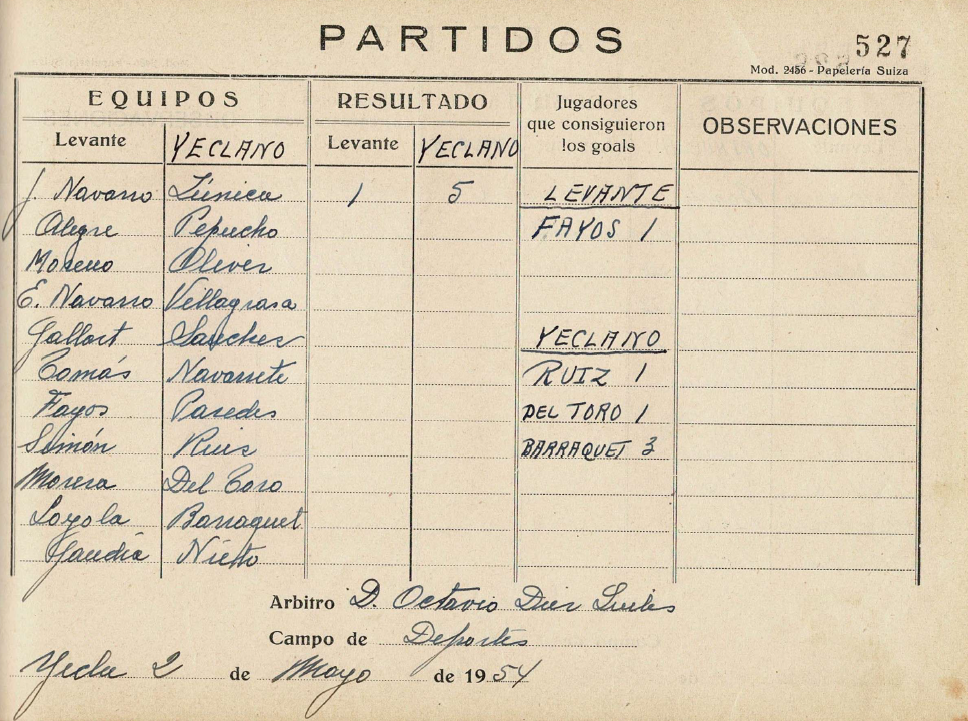 PARTIDOS
527
Mod. 2456 - Papelería Suiza
EQUIPOS RESULTADO Jugadores que consiguieron los goals OBSERVACIONES
Levante YECLANO Levante YECLANO
J. Navarro Zúnica 1 5 LEVANTE
Alegre Pepucho FAYOS 1
Moreno Oliver
E. Navarro Villagrasa
Gallart Sanchez YECLANO
Tomás Navarrete RUIZ 1
Fayos Paredes DEL TORO 1
Simón Ruiz BARRAQUET 3
Morera Del Toro
Loyola Barraquet
Gandía Nieto
Arbitro D. Octavio Diez
Campo de Deportes
Yecla 2 de Mayo de 1954